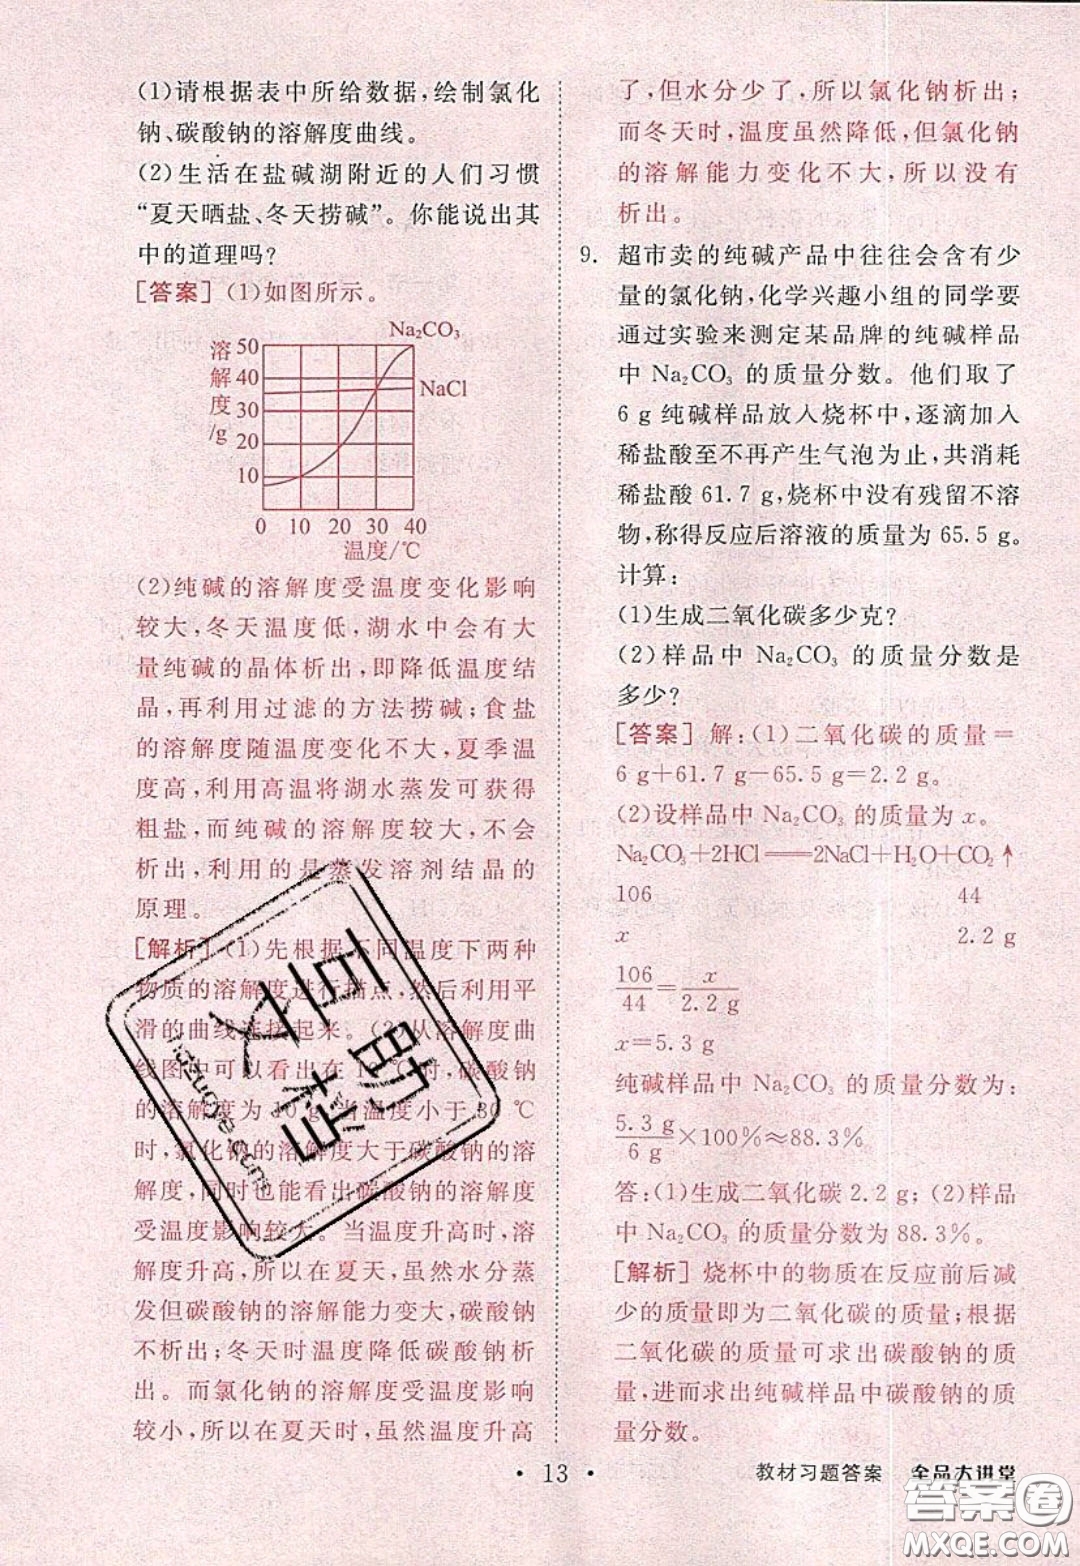 (1)请根据表中所给数据,绘制氯化
钠、碳酸钠的溶解度曲线。
(2)生活在盐碱湖附近的人们习惯
“夏天晒盐、冬天捞碱”。你能说出其
中的道理吗?
[答案](1)如图所示。
Na₂CO₃
NaCl
溶解度/g
50
40
30
20
10
0 10 20 30 40
温度/℃
(2)纯碱的溶解度受温度变化影响
较大,冬天温度低,湖水中会有大
量纯碱的晶体析出,即降低温度结
晶,再利用过滤的方法捞碱;食盐
的溶解度随温度变化不大,夏季温
度高,利用高温将湖水蒸发可获得
粗盐,而纯碱的溶解度较大,不会
析出,利用的是蒸发溶剂结晶的
原理。
[解析](1)先根据不同温度下两种
物质的溶解度进行描点,然后利用平
滑的曲线连接起来。(2)从溶解度曲
线图中可以看出在10 ℃时,碳酸钠
的溶解度为10 g,当温度小于30 ℃
时,氯化钠的溶解度大于碳酸钠的溶
解度,同时也能看出碳酸钠的溶解度
受温度影响较大。当温度升高时,溶
解度升高,所以在夏天,虽然水分蒸
发但碳酸钠的溶解能力变大,碳酸钠
不析出;冬天时温度降低碳酸钠析
出。而氯化钠的溶解度受温度影响
较小,所以在夏天时,虽然温度升高
了,但水分少了,所以氯化钠析出;
而冬天时,温度虽然降低,但氯化钠
的溶解能力变化不大,所以没有
析出。
9. 超市卖的纯碱产品中往往会含有少
量的氯化钠,化学兴趣小组的同学要
通过实验来测定某品牌的纯碱样品
中 Na₂CO₃ 的质量分数。他们取了
6 g 纯碱样品放入烧杯中,逐滴加入
稀盐酸至不再产生气泡为止,共消耗
稀盐酸 61.7 g,烧杯中没有残留不溶
物,称得反应后溶液的质量为 65.5 g。
计算:
(1)生成二氧化碳多少克?
(2)样品中 Na₂CO₃ 的质量分数是
多少?
[答案] 解:(1)二氧化碳的质量=
6 g+61.7 g-65.5 g=2.2 g。
(2)设样品中 Na₂CO₃ 的质量为 x。
Na₂CO₃+2HCl══2NaCl+H₂O+CO₂↑
106 44
x 2.2 g
106/44=x/2.2 g
x=5.3 g
纯碱样品中 Na₂CO₃ 的质量分数为:
5.3 g/6 g×100%≈88.3%
答:(1)生成二氧化碳 2.2 g;(2)样品
中 Na₂CO₃ 的质量分数为 88.3%。
[解析] 烧杯中的物质在反应前后减
少的质量即为二氧化碳的质量;根据
二氧化碳的质量可求出碳酸钠的质
量,进而求出纯碱样品中碳酸钠的质
量分数。
• 13 •
教材习题答案 全品大讲堂
答案圈
MXQE.COM